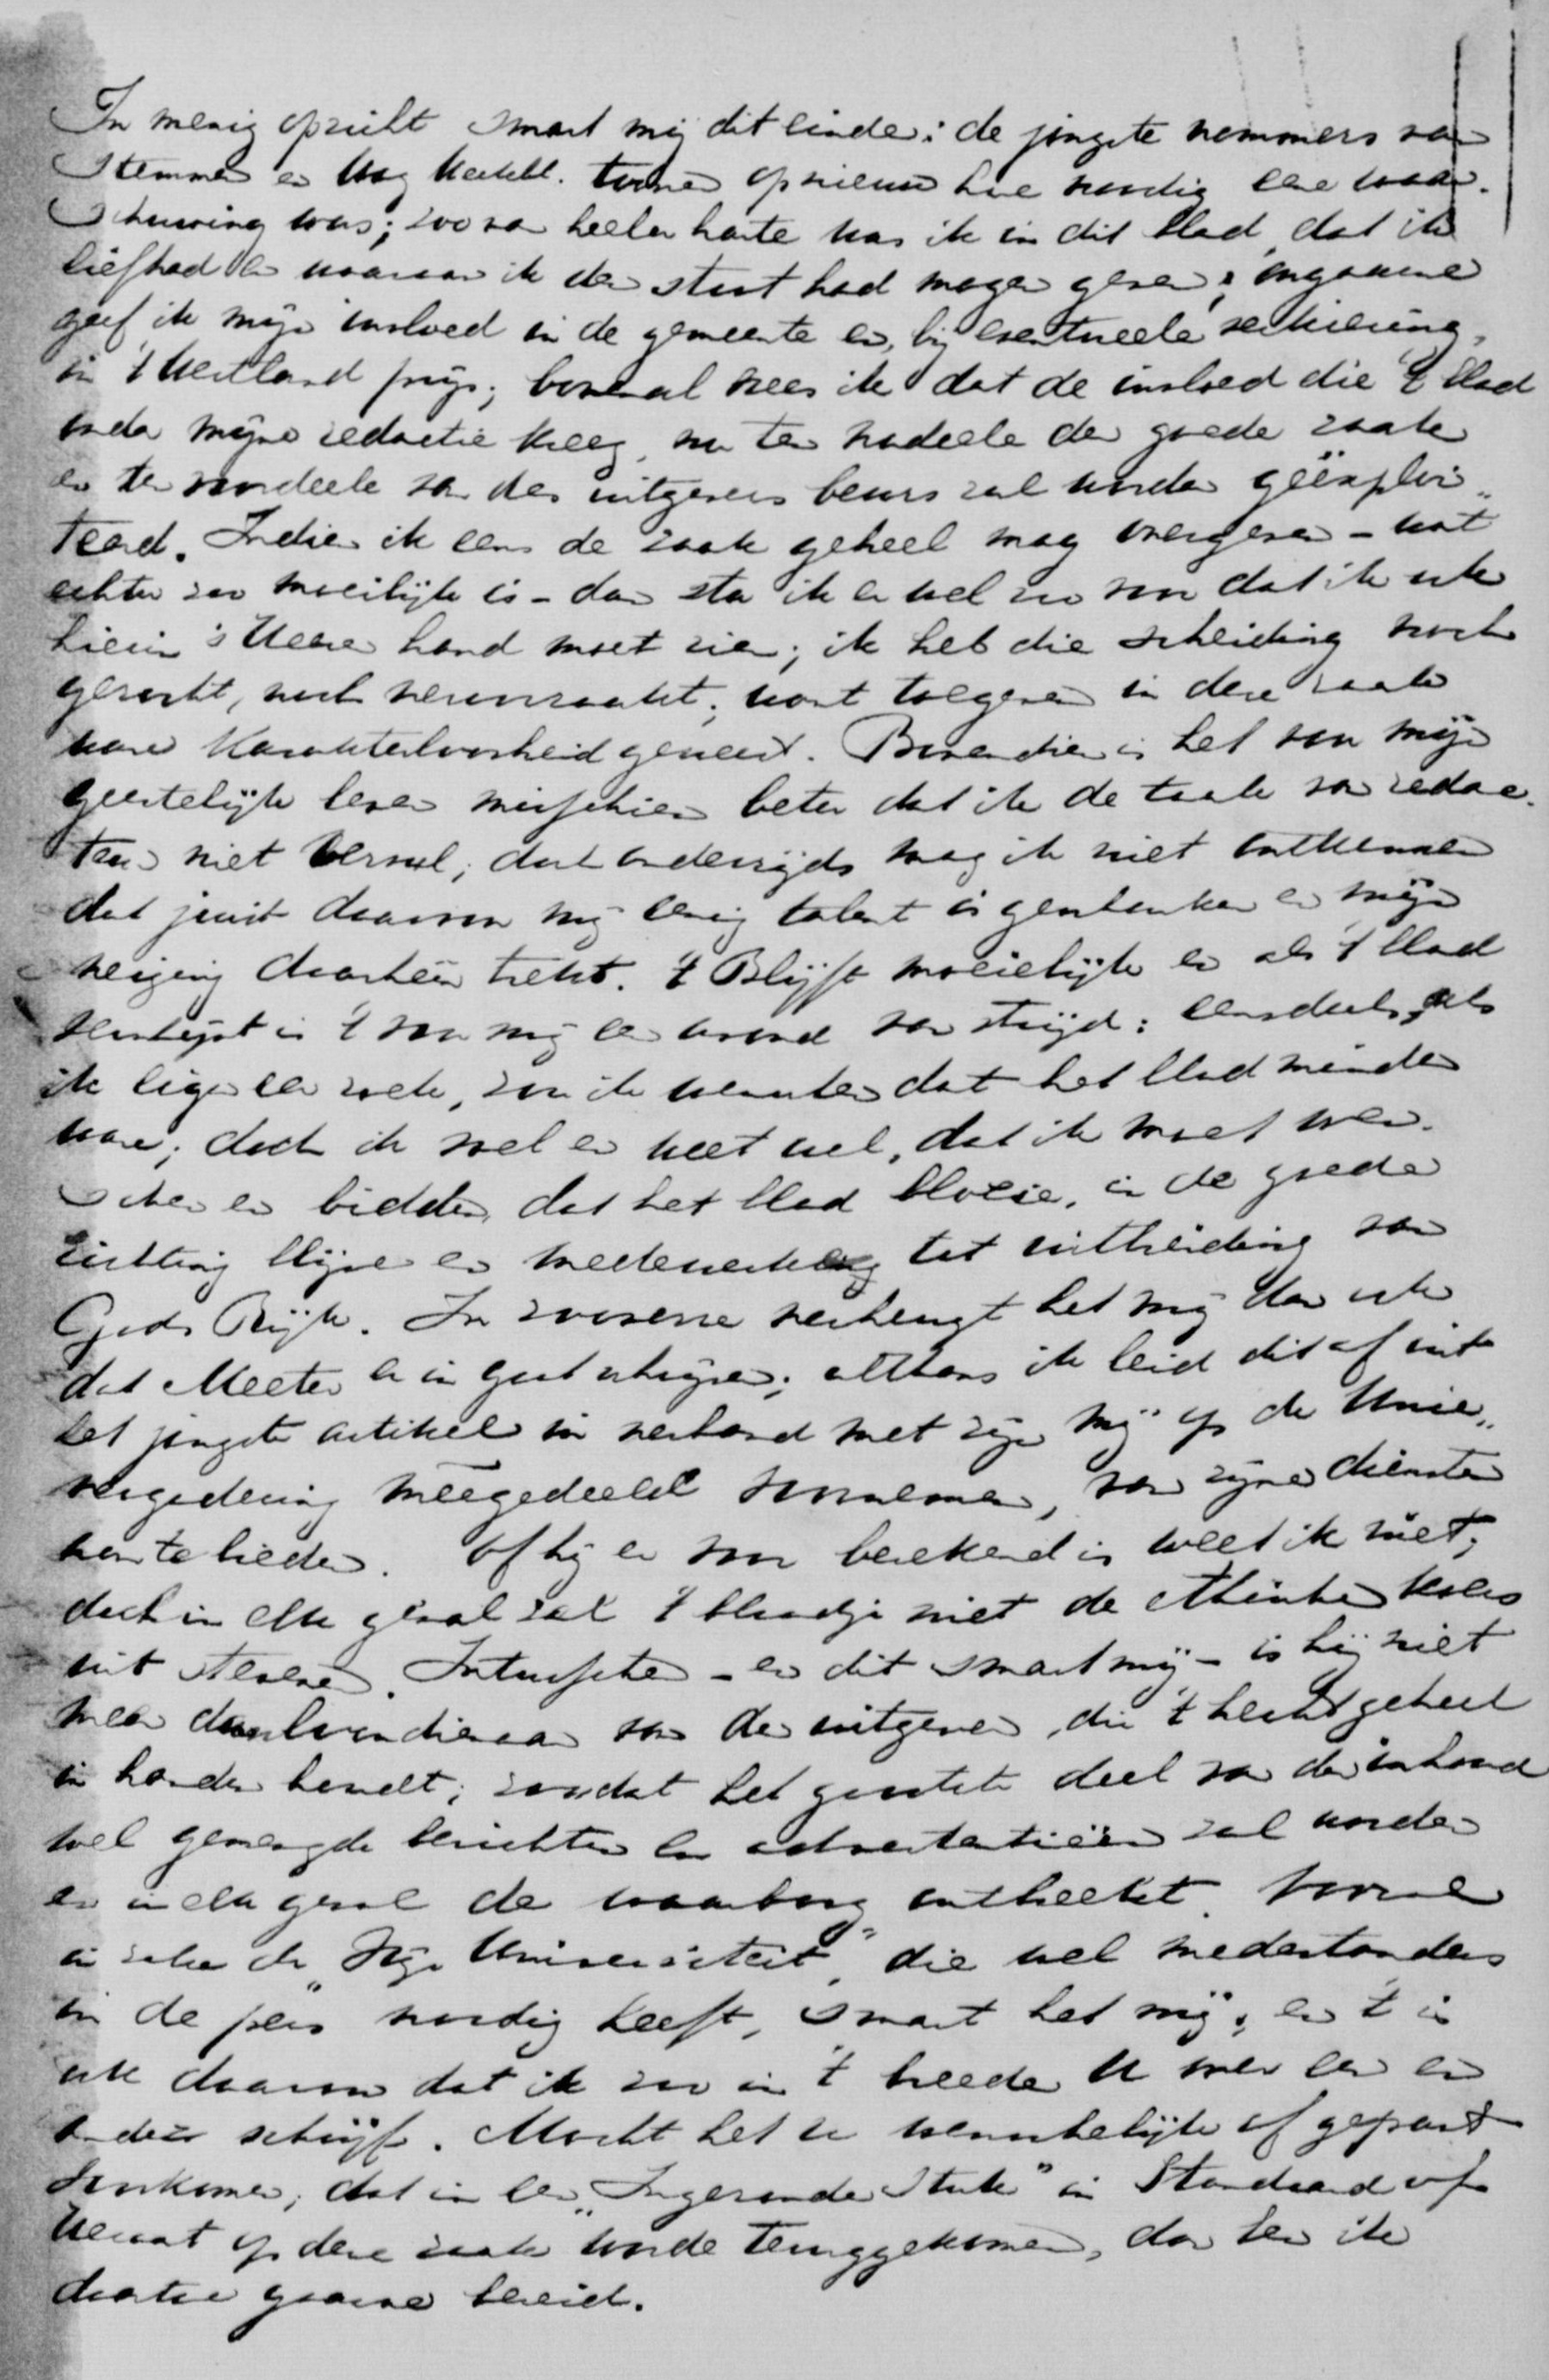 In menig opzicht smart mij dit einde: de jongste nommers van
Stemmen en toonen opnieuw hoe noodig eene waar-
schuwing was; zoo van heeler harte was ik in dit blad, dat ik
liefhad en waaraan ik den stoot had mogen geven; ongaarne
geef ik mijn invloed in de gemeente en, bij eventueele verkiezing,
in 't Westland prijs; bovenal vrees ik dat de invloed die 't blad
onder mijne redactie kreeg, nu ten nadeele der goede zaak
en ten voordeele van des uitgevers beurs zal worden geëxploi-
teerd. Indien ik eens de zaak geheel mag overgeven - wat
echter zoo moeilijk is - dan sta ik er wel zoo voor dat ik ook
hierin 's Heeren hand moet zien; ik heb die scheiding noch
gezocht, noch veroorzaakt; want toegeven in deze zaak
ware karakterloosheid geweest. Bovendien is het voor mijn
geestelijk leven misschien beter dat ik de taak van redac-
teur niet vervul; doch anderzijds mag ik niet ontkennen
dat juist daarvoor mij eenig talent is geschonken en mijn
neiging daarheen trekt. 't Blijft moeielijk en als 't blad
verschijnt is 't voor mij een avond van strijd: eensdeels, als
ik eigen eer zoek, zou ik wenschen dat het blad minder
ware; doch ik voel en weet wel, dat ik moet wen-
schen en bidden, dat het blad bloeie, in de goede
richting blijve en medewerke tot uitbreiding van
Gods Rijk. In zooverre verheugt het mij dan ook
dat Meeter er in gaat schrijven; althans ik leid dit af uit
het jongste artikel in verband met zijn mij op de Unie-
vergadering meegedeeld voornemen, van zijne diensten
aan te bieden. Of hij er voor berekend is weet ik niet;
doch in elk geval zal 't blaadje niet de ethische koers
uit stevenen. Intusschen - en dit smart mij - is hij niet
meer dan loondienaar van den uitgever, die 't heft geheel
in handen houdt; zoodat het grootste deel van den inhoud
wel gemengde berichten en advertentieën zal worden
en in elk geval de waarborg ontbreekt. Vooral
in zake de "Vrije Universiteit", die wel medestanders
in de pers noodig heeft, smart het mij; en 't is
ook daarom dat ik zoo in 't breede U over een en
ander schrijf. Mocht het U wenschelijk of gepast
voorkomen, dat in een "Ingezonden Stuk" in Standaard of
Heraut op deze zaak worde teruggekomen, dan ben ik
daartoe gaarne bereid.